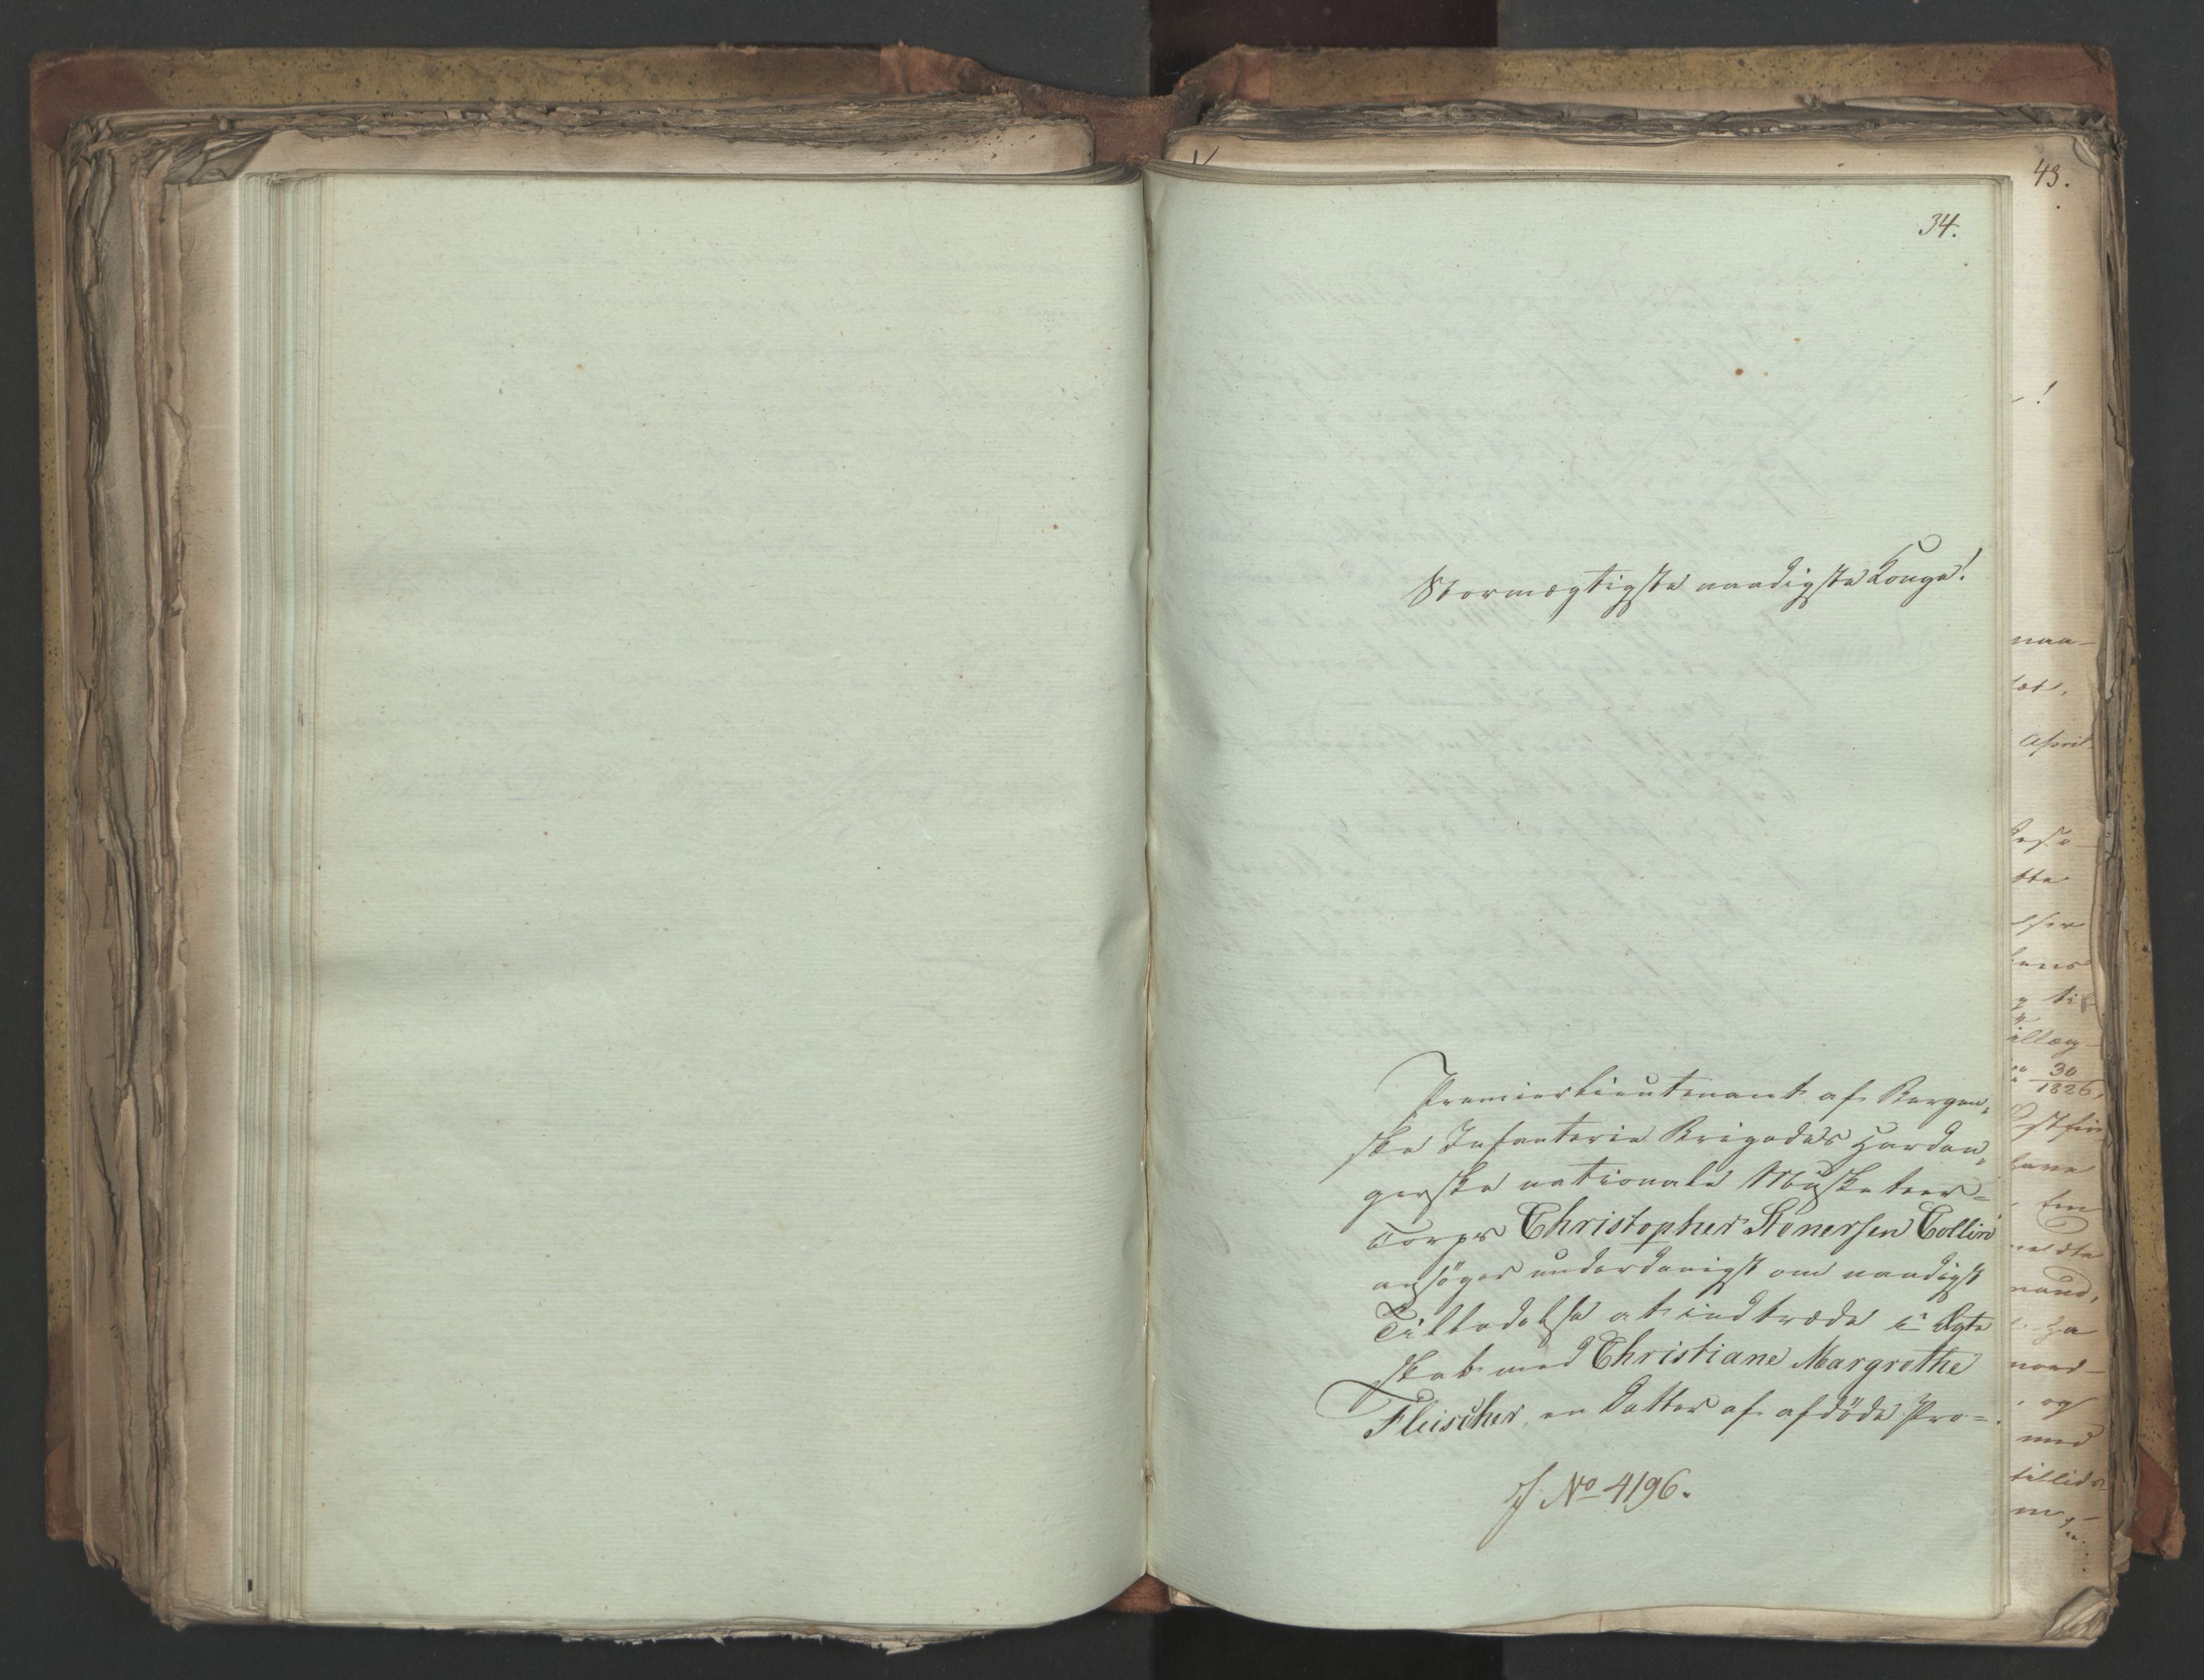 43.
34.
Stormægtigste naadigste Konge!
Premierlieutenant af Bergen„
ske Infanterie Brigades Hardan„
gerske nationale Musketeer=
Corps Christopher Stonersen Collin
ansöger underdanigst om naadigst
Tilladelse at indtræde i Ægte
skab med Christiane Margrethe
Fleischer, en Datter af afdöde Pro=
J No 4196.
naa-
April
tte
30
1826,
og
med